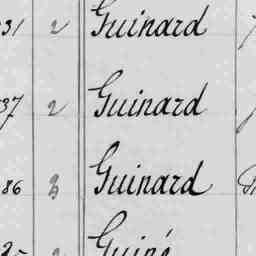 31 2 Guinard
37 2 Guinard
86 3 Guinard
Guiné